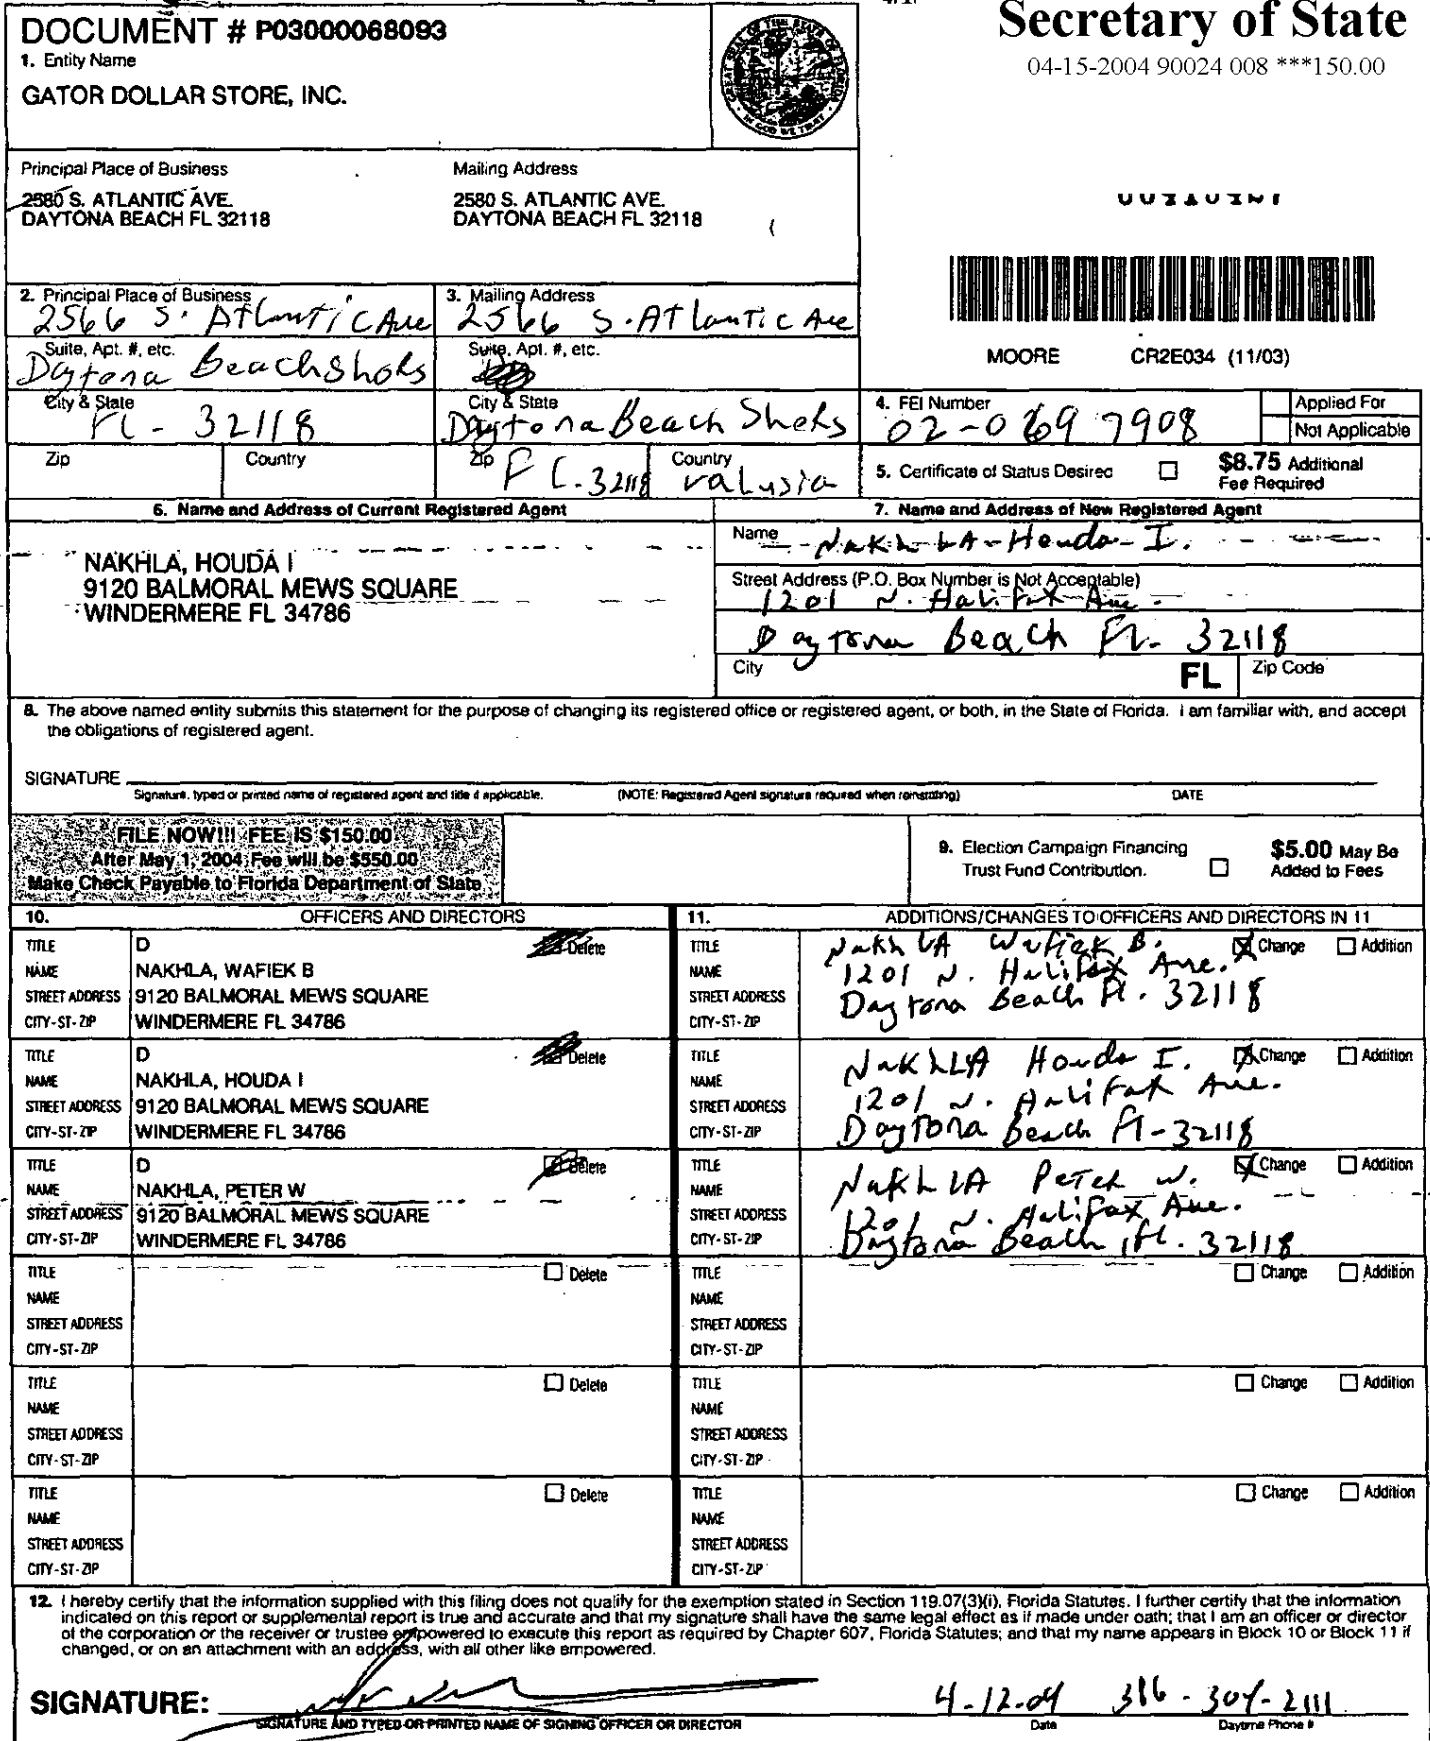 DOCUMENT # P03000068093
1. Entity Name
GATOR DOLLAR STORE, INC.
Secretary of State
04-15-2004 90024 008 ***150.00
Principal Place of Business
2580 S. ATLANTIC AVE.
DAYTONA BEACH FL 32118
Mailing Address
2580 S. ATLANTIC AVE.
DAYTONA BEACH FL 32118
MOORE CR2E034 (11/03)
2. Principal Place of Business
2566 S. Atlantic Ave
Suite, Apt. #, etc.
Daytona Beach Shors
City & State
FL - 32118
Zip Country
3. Mailing Address
2566 S. Atlantic Ave
Suite, Apt. #, etc.
City & State
Daytona Beach Shors
Zip Country
FL. 32118 Valusia
4. FEI Number
02-0697908
Applied For
Not Applicable
5. Certificate of Status Desired
$8.75 Additional
Fee Required
6. Name and Address of Current Registered Agent
NAKHLA, HOUDA I
9120 BALMORAL MEWS SQUARE
WINDERMERE FL 34786
7. Name and Address of New Registered Agent
Name
NakhLA-Houda-I.
Street Address (P.O. Box Number is Not Acceptable)
1201 N. Halifax Ave.
Daytona Beach FL. 32118
City FL Zip Code
8. The above named entity submits this statement for the purpose of changing its registered office or registered agent, or both, in the State of Florida. I am familiar with, and accept
the obligations of registered agent.
SIGNATURE
Signature, typed or printed name of registered agent and title if applicable. (NOTE: Registered Agent signature required when reinstating) DATE
FILE NOW!!! FEE IS $150.00
After May 1, 2004 Fee will be $550.00
Make Check Payable to Florida Department of State
9. Election Campaign Financing
Trust Fund Contribution.
$5.00 May Be
Added to Fees
10. OFFICERS AND DIRECTORS
TITLE D Delete
NAME NAKHLA, WAFIEK B
STREET ADDRESS 9120 BALMORAL MEWS SQUARE
CITY-ST-ZIP WINDERMERE FL 34786
TITLE D Delete
NAME NAKHLA, HOUDA I
STREET ADDRESS 9120 BALMORAL MEWS SQUARE
CITY-ST-ZIP WINDERMERE FL 34786
TITLE D Delete
NAME NAKHLA, PETER W
STREET ADDRESS 9120 BALMORAL MEWS SQUARE
CITY-ST-ZIP WINDERMERE FL 34786
TITLE Delete
NAME
STREET ADDRESS
CITY-ST-ZIP
TITLE Delete
NAME
STREET ADDRESS
CITY-ST-ZIP
TITLE Delete
NAME
STREET ADDRESS
CITY-ST-ZIP
11. ADDITIONS/CHANGES TO OFFICERS AND DIRECTORS IN 11
TITLE NakhLA Wafiek B. Change Addition
NAME 1201 N. Halifax Ave.
STREET ADDRESS Daytona Beach Fl. 32118
CITY-ST-ZIP
TITLE NakhLLA Houda I. Change Addition
NAME 1201 N. Halifax Ave.
STREET ADDRESS
CITY-ST-ZIP Daytona Beach Fl-32118
TITLE NakhLA Peter W. Change Addition
NAME
STREET ADDRESS 1201 N. Halifax Ave.
CITY-ST-ZIP Daytona Beach, Fl. 32118
TITLE Change Addition
NAME
STREET ADDRESS
CITY-ST-ZIP
TITLE Change Addition
NAME
STREET ADDRESS
CITY-ST-ZIP
TITLE Change Addition
NAME
STREET ADDRESS
CITY-ST-ZIP
12. I hereby certify that the information supplied with this filing does not qualify for the exemption stated in Section 119.07(3)(i), Florida Statutes. I further certify that the information
indicated on this report or supplemental report is true and accurate and that my signature shall have the same legal effect as if made under oath; that I am an officer or director
of the corporation or the receiver or trustee empowered to execute this report as required by Chapter 607, Florida Statutes; and that my name appears in Block 10 or Block 11 if
changed, or on an attachment with an address, with all other like empowered.
SIGNATURE: 4-12-04 386-304-2111
SIGNATURE AND TYPED OR PRINTED NAME OF SIGNING OFFICER OR DIRECTOR Date Daytime Phone #